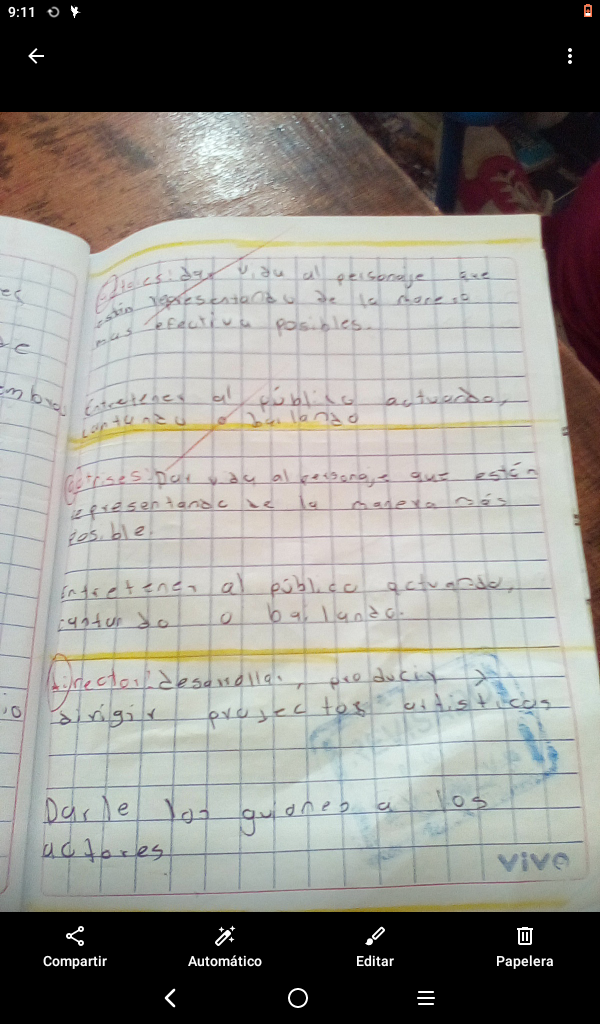 9:11
Actores: dar vida al personaje que
están representando de la manera
mas efectiva posibles.
Entretener al público actuando,
cantando o bailando
Actrises: Dar vida al personaje que están
representando de la manera más
posible.
Entretener al público actuando,
cantando o bailando.
Director: desarrollar, producir y
dirigir proyectos artisticos
Darle los guiones a los
actores
vivo
Compartir
Automático
Editar
Papelera